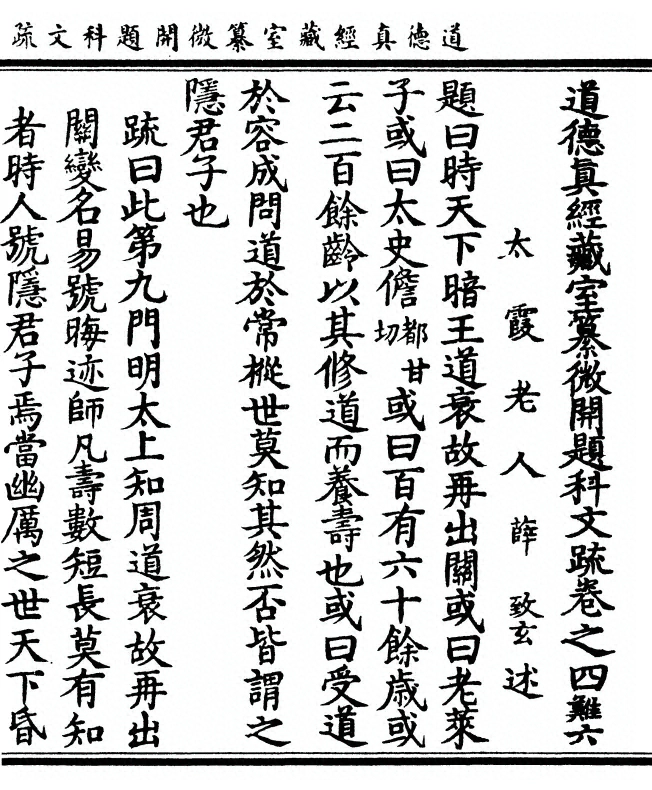 道德真經藏室纂微開題科文疏
道德眞經藏室纂微開題科文疏卷之四難六
太霞老人薛致玄述
題曰時天下暗王道衰故再出關或曰老萊
子或曰太史儋都甘切或曰百有六十餘歳或
云二百餘齡以其修道而養壽也或曰受道
於容成問道於常樅世莫知其然否皆謂之
隱君子也
疏曰此第九門明太上知周道衰故再出
關變名易號晦迹師凡壽數短長莫有知
者時人號隱君子焉當幽厲之世天下昏